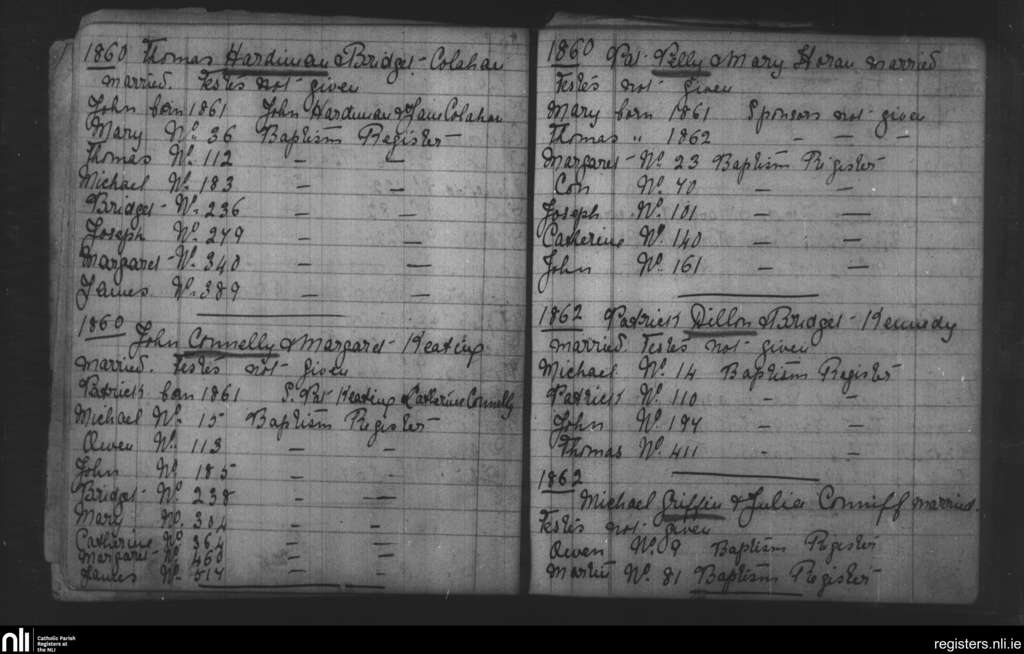 1860 Thomas Hardiman & Bridget Colahan
married. Testes not given
John born 1861 John Hardiman & Jane Colahan
Mary No. 36 Baptism Register
Thomas No. 112 — —
Michael No. 183 — —
Bridget No. 236 — —
Joseph No. 279 — —
Margaret No. 340 — —
James No. 389 — —
1860
John Connelly & Margaret Keating
married. Testes not given
Patrick born 1861 S. Pat Keating & Catherine Connelly
Michael No. 15 Baptism Register
Owen No. 113 — —
John No. 185 — —
Bridget No. 238 — —
Mary No. 304 — —
Catherine No. 364 — —
Margaret No. 460 — —
James No. 514 — —
1860 Pat Pelly & Mary Horan married
Testes not given
Mary born 1861 Sponsors not given
Thomas " 1862 — — —
Margaret No. 23 Baptism Register
Con No. 70 — —
Joseph No. 101 — —
Catherine No. 140 — —
John No. 161 — —
1862 Patrick Dillon & Bridget Kennedy
married. Testes not given
Michael No. 14 Baptism Register
Patrick No. 110 - -
John No. 194 — —
Thomas No. 411 - -
1862
Michael Griffin & Julia Conniff married.
Testes not given
Owen No. 9 Baptism Register
Martin No. 81 Baptism Register
nli Catholic Parish
Registers at
the NLI
registers.nli.ie